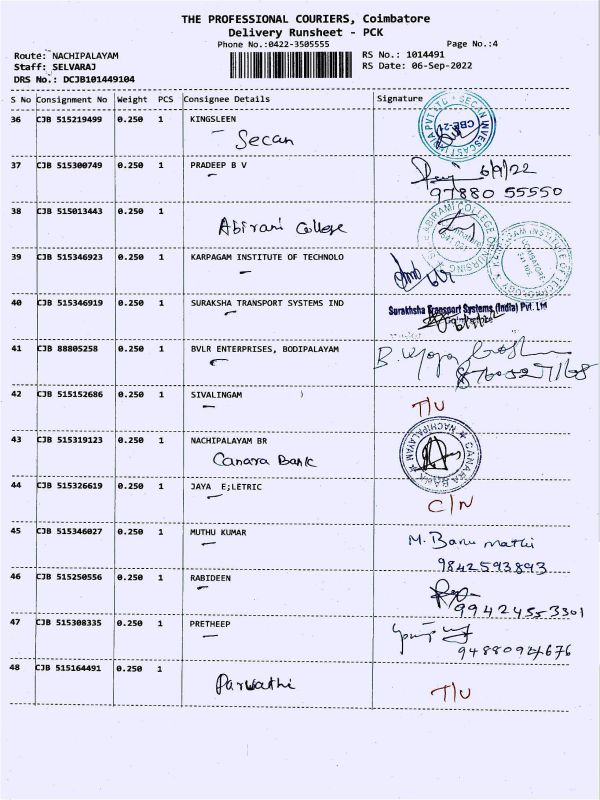 THE PROFESSIONAL COURIERS, Coimbatore
Delivery Runsheet - PCK
Phone No.:0422-3505555 Page No.:4
Route: NACHIPALAYAM RS No.: 1014491
Staff: SELVARAJ RS Date: 06-Sep-2022
DRS No.: DCJB101449104
S No Consignment No Weight PCS Consignee Details Signature
36 CJB 515219499 0.250 1 KINGSLEEN
Secan
37 CJB 515300749 0.250 1 PRADEEP B V 6/9/22
97880 55550
38 CJB 515013443 0.250 1
Abirami College
39 CJB 515346923 0.250 1 KARPAGAM INSTITUTE OF TECHNOLO
40 CJB 515346919 0.250 1 SURAKSHA TRANSPORT SYSTEMS IND Surakhsha Transport Systems (India) Pvt. Ltd
41 CJB 88805258 0.250 1 BVLR ENTERPRISES, BODIPALAYAM
42 CJB 515152686 0.250 1 SIVALINGAM T/U
43 CJB 515319123 0.250 1 NACHIPALAYAM BR
Canara Bank
CANARA BANK NACHIPALAYAM
44 CJB 515326619 0.250 1 JAYA E;LETRIC C/N
45 CJB 515346027 0.250 1 MUTHU KUMAR M. Banu mathi
9842593893
46 CJB 515250556 0.250 1 RABIDEEN
99424553301
47 CJB 515308335 0.250 1 PRETHEEP
9488094676
48 CJB 515164491 0.250 1
Parwathi T/U